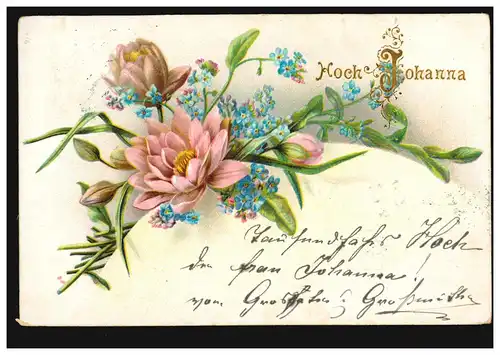 Hoch Johanna
tausendfachs Hoch
der frau Johanna!
von Großvater u Großmutter